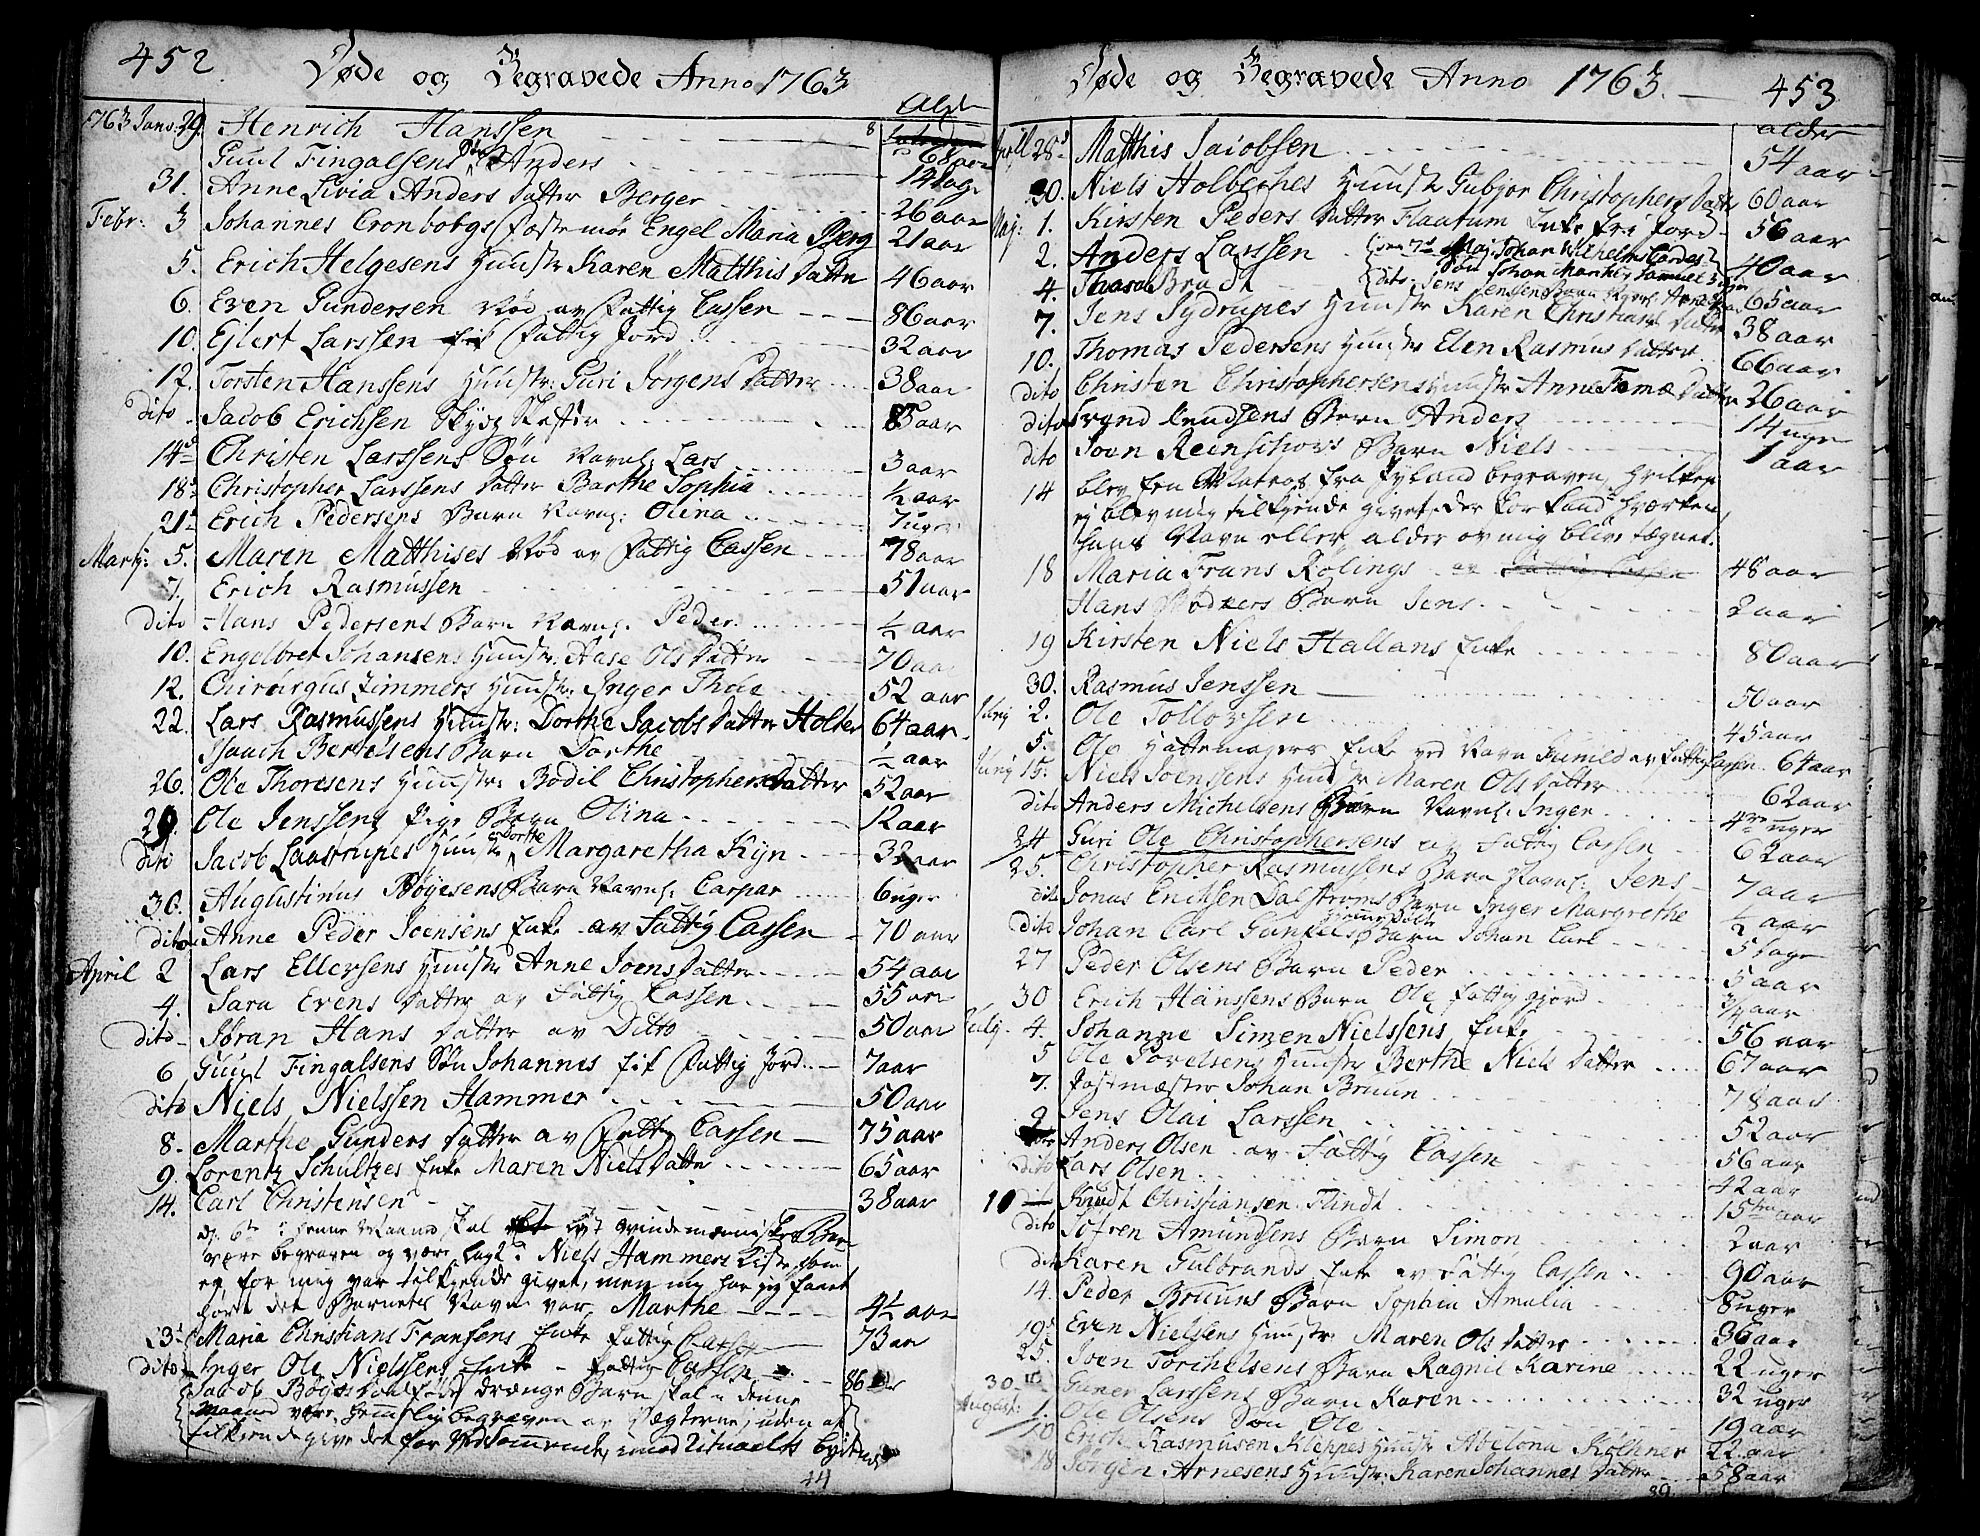 452 Døde og Begravede Anno 1763
Alder
1763 Janv. 29. Henrich Hanssen 68 aar
Guul Fingalsens Søn Anders 14 dage
31. Anne Livia Anders Datter Berger 26 aar
Febr: 3 Johannes Cronborgs Fostemøe Engel Maria Berg 21 aar
5. Erich Helgesens Huustr Karen Matthis Datter 46 aar
6. Even Gundersen Nød av Fattig Cassen 86 aar
10. Ejlert Larssen fik Fattig Jord 32 aar
12. Torsten Hanssens Huustr: Guri Jørgens Datter 38 aar
dito Jacob Erichsen 85 aar
14d Christen Larssens Søn Navnl. Lars 3 aar
18d Christopher Larssens Datter Barthe Sophia ½ aar
21d Erich Pedersens Barn Navnl: Olina 7 uger
Marty: 5. Maren Matthises Nød av Fattig Cassen 78 aar
7. Erich Rasmussen 51 aar
dito Hans Pedersens Barn Navnl. Peder ½ aar
10. Engelbret Johansens Huustr: Aase Ols Datter 70 aar
12. Chirurgus Zimmers Huustr: Inger Thue 52 aar
22. Lars Rasmussens Huustr: Dorthe Jacobs Datter Holter 64 aar
Isaach Bertelsens Barn Dorthe ½ aar
26. Ole Thoresens Huustr: Bodil Christophers Datter 52 aar
29. Ole Jenssens Pige Barn Olina 12 aar
dito Jacob Laastrupes Huustr Dorthe Margaretha Kyn 32 aar
30. Augustinus Bøyesens Barn Navnl. Caspar 6 uger
dito Anne Peder Joensens Enke av Fattig Cassen 70 aar
April 2 Lars Ellersens Huustr Anne Joens Datter 54 aar
4. Sara Evens Datter av Fattig Cassen 55 aar
dito Jøran Hans Datter av Ditto 50 aar
6 Guul Fingalsens Søn Johannes fik Fattig Jord 7 aar
dito Niels Nielssen Hammer 50 aar
8. Marthe Gunders Datter av Fattig Cassen 75 aar
9. Lorentz Schultzes Enke Maren Niels Datter 65 aar
14. Carl Christensen 38 aar
d. 6te i denne Maaned skal et løst qvindemenniskes Barn
være begraven og være lagt i Niels Hammers Kiste, som
ey for mig var tilkiende givet, men jeg har jeg faaet
høre det Barnets Navn var Marthe 4½ aar
23d Maria Christians Fransens Enke Fattig Cassen 73 aar
dito Inger Ole Nielssens Enke Fattig Cassen 86 aar
Jacob drænge Barn skal i denne
Maaned være hemmelig begraven av Vægterne, uden at
tilkiende give det for Vedkommende, imod Ritualets
44
Døde og Begravede Anno 1763. 453
alder
April 28d Matthis Jacobsen 54 aar
30. Niels Holbeches Huustr Gubjør Christophers Datter 60 aar
Maj: 1. Kirsten Peders Datter Flaatum Enke fri Jord 56 aar
2. Anders Larssen 40 aar
den 7d Maj: Johan Wilhelm Cordes
Søn Johan Samuel
4. Brodt 65 aar
dito Jens Jenssens Barn
7. Jens Sydrupes Huustr Karen Christians Datter 38 aar
10. Thomas Pedersens Huustr Elen Rasmus Datter 66 aar
dito Christen Christophersens Huustr Anne Datter 26 aar
dito Svend Knudsens Barn Anders 14 uger
dito Joen Reinschovs Barn Niels 1 aar
14 blev een Matros fra Jylland begraven, hvilken
ej blev mig tilkjende givet, der for kand hverken
hans Navn eller alder av mig blive tægnet.
18 Maria Frans Rølings av Fattig Cassen 48 aar
Hans Bødkers Barn Jens 2 aar
19 Kirsten Niels Hallans Enke 80 aar
30. Rasmus Jenssen 50 aar
Junij 2. Ole Tollovsen 45 aar
5. Ole Hattemagers Enke ved Navn Gunild av Fattig Cassen 64 aar
Junij 15. Niels Joenssens Huustr Maren Ols Datter 62 aar
dito Anders Michelsens Barn Navnl. Inger 4re uger
24 Guri Ole Christophersens av Fattig Cassen 62 aar
25. Christopher Rasmussens Barn Navnl: Jens 7 aar
dito Jonas Erichsen Dalstrøms Barn Inger Margrethe ½ aar
dito Johan Carl Gunkels Barn Johan Carl 5 dage
27 Peder Olsens Barn Peder 5 aar
30 Erich Hanssens Barn Ole Fattig gjord ¾ aar
Julij. 4. Johanne Simen Nielssens Enke 56 aar
5 Ole Povelsens Huustr Berthe Niels Datter 67 aar
7. Postmæster Johan Bruun 78 aar
9 Jens Olai Larssen 52 aar
Anders Olsen av Fattig Cassen 56 aar
dito Lars Olsen 42 aar
10 Knudt Christiansen Flindt 15 aar
dito Søfren Amundsens Barn Simon 2 aar
dito Karen Gulbrands Enke av Fattig Cassen 90 aar
14. Peder Bruuns Barn Sophia Amalia 8 uger
19d Even Nielssens Huustr Maren Ols Datter 36 aar
25. Joen Torchelsens Barn Ragnil Karine 22 uger
30 Guner Larssens Barn Karen 32 uger
August: 1. Ole Olsens Søn Ole 19 aar
10 Erich Rasmusen Kleppes Huustr Abelona Kølchner 22 aar
18 Jørgen Arnesens Huustr: Karen Johannes Datter 58 aar
39